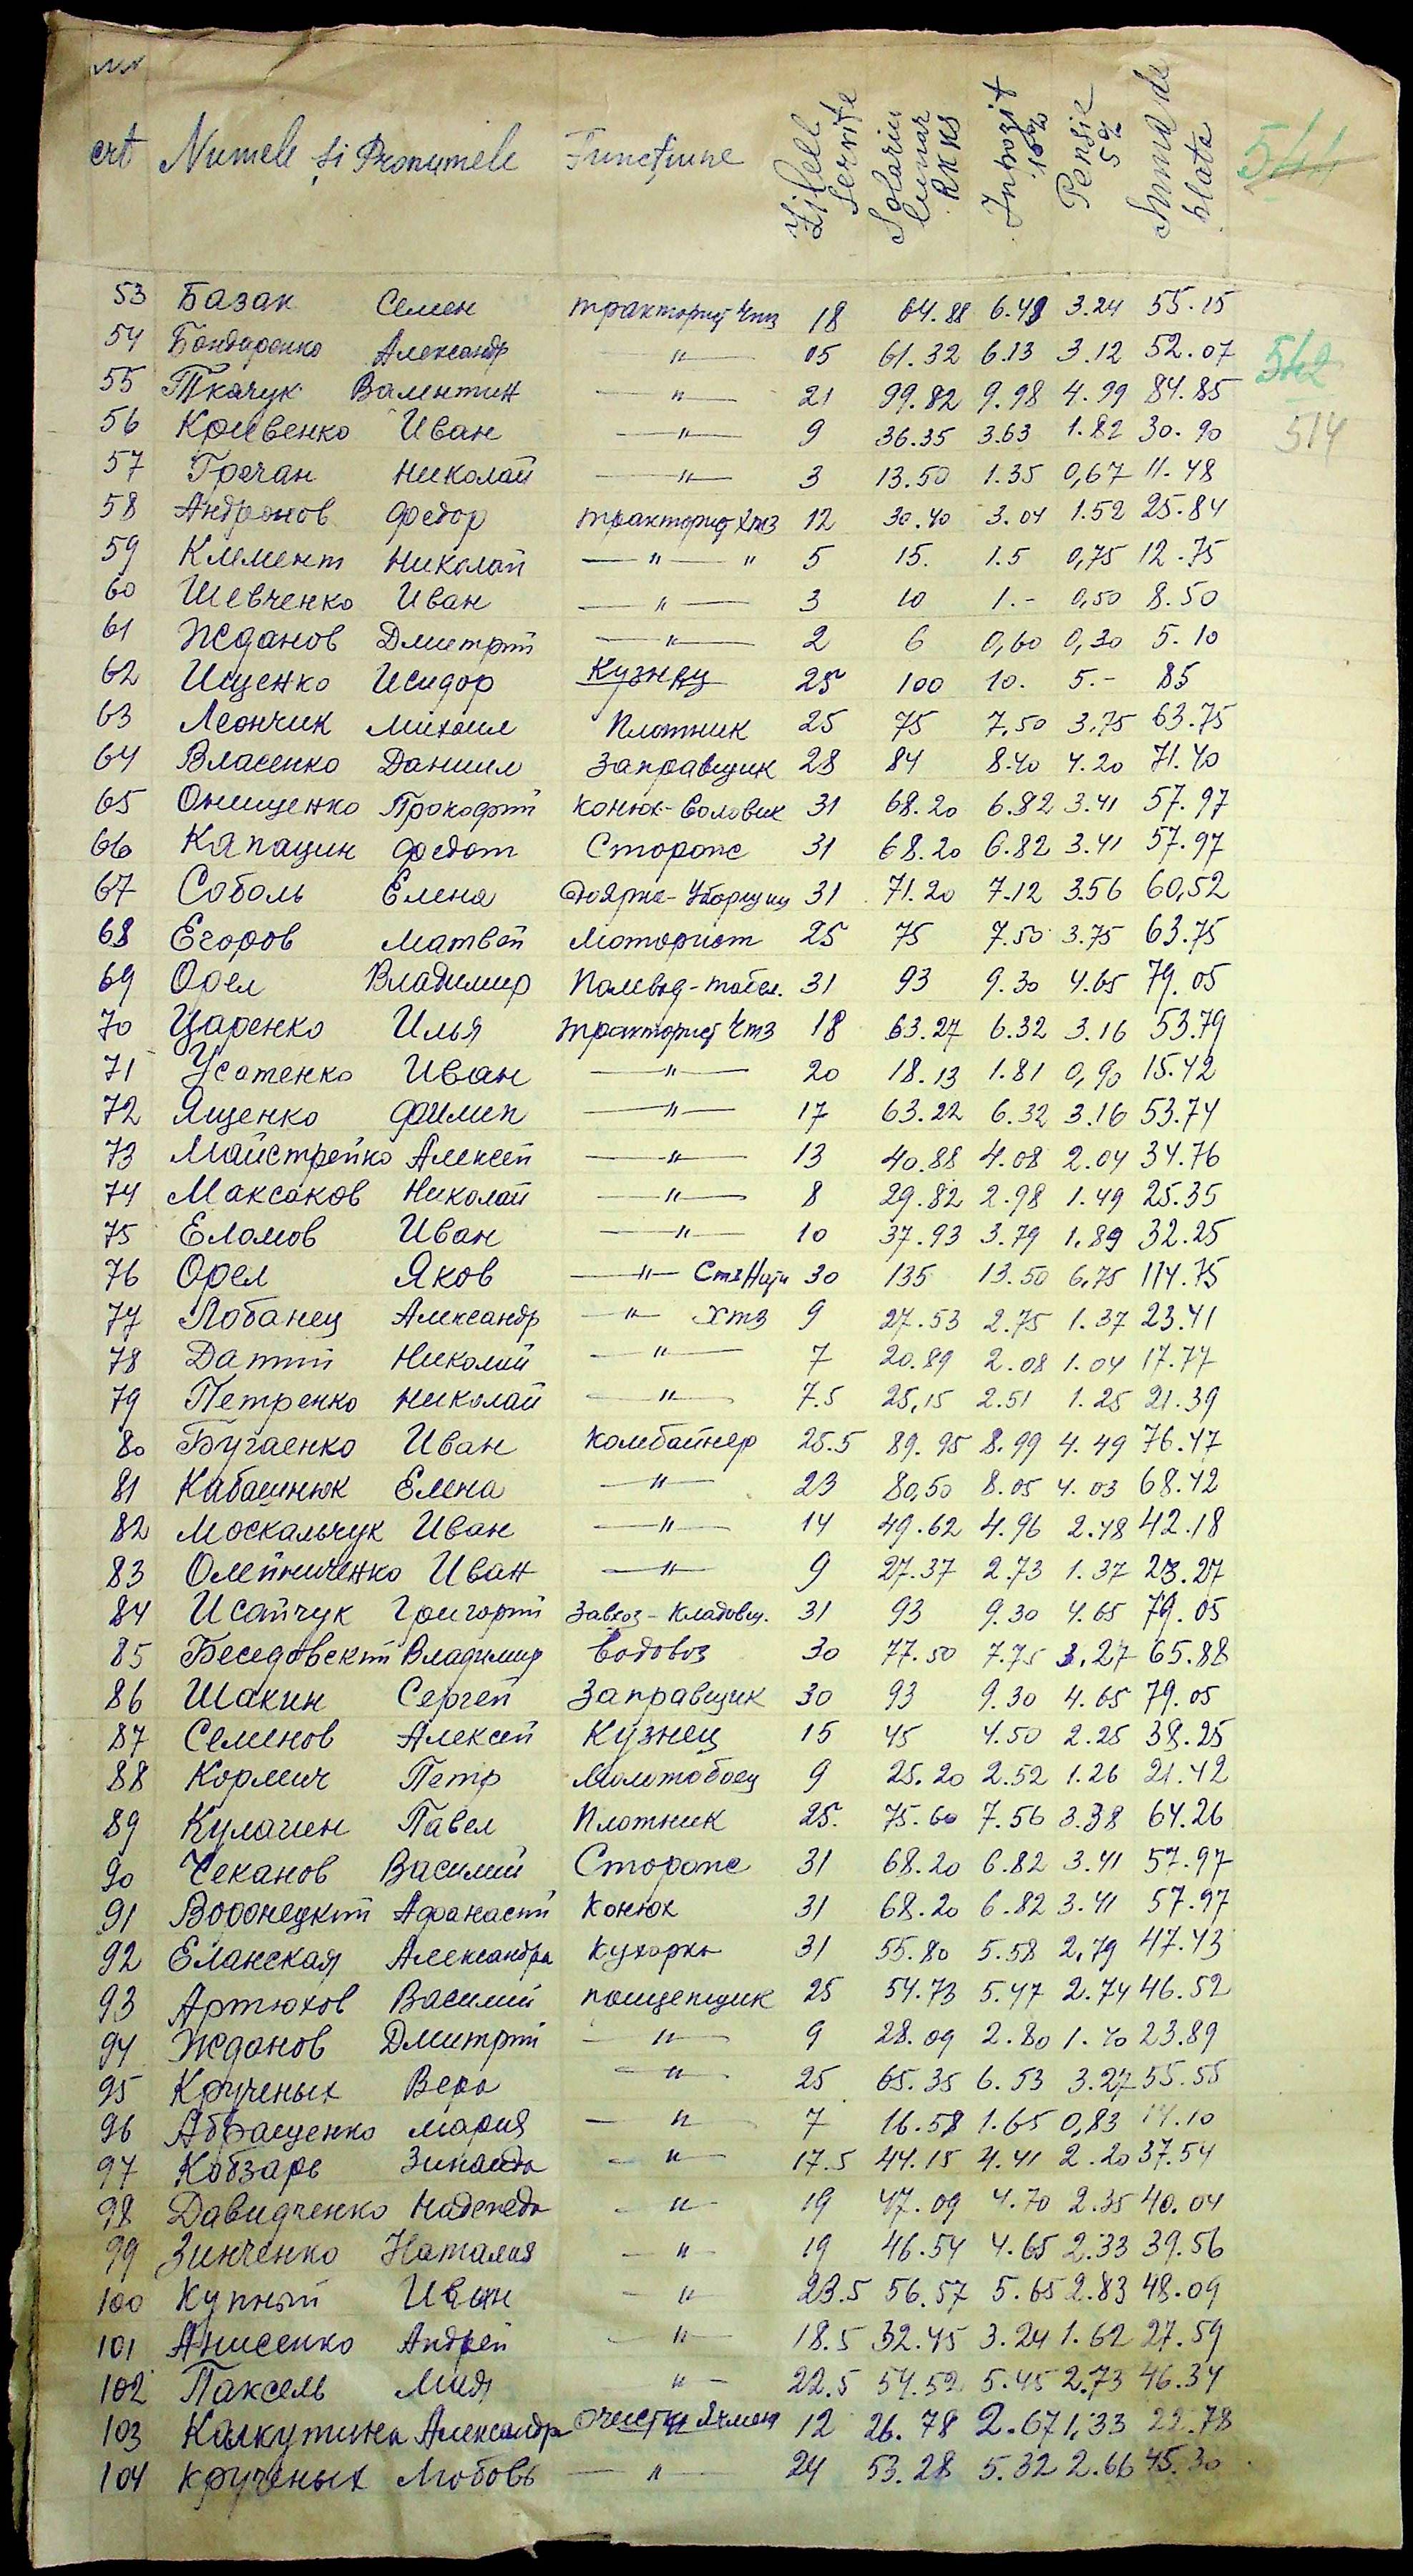 crt Numele și Pronumele Funcțiune Zilele Servite Solariu lunar RKKS Impozit 10% Pensie 5% Suma de plata 544
53 Базак Семен тракторист Чтз 18 64.88 6.48 3.24 55.15
54 Бондаренко Александр —"— 05 61.32 6.13 3.12 52.07 542
55 Ткачук Валентин —"— 21 99.82 9.98 4.99 84.85
56 Кривенко Иван —"— 9 36.35 3.63 1.82 30.90 514
57 Гречан Николай —"— 3 13.50 1.35 0,67 11.48
58 Андронов Федор тракторист Хтз 12 30.40 3.04 1.52 25.84
59 Клемент Николай —"— " 5 15. 1.5 0,75 12.75
60 Шевченко Иван —"— 3 10 1.- 0,50 8.50
61 Жданов Дмитрий —"— 2 6 0,60 0,30 5.10
62 Ищенко Исидор Кузнец 25 100 10. 5.- 85
63 Леончик Михаил Плотник 25 75 7,50 3,75 63.75
64 Власенко Даниил Заправщик 28 84 8.40 4.20 71.40
65 Онищенко Прокофий Конюх-Воловик 31 68.20 6.82 3.41 57.97
66 Капацин Федот Сторож 31 68.20 6.82 3.41 57.97
67 Соболь Елена Доярка-Уборщиц 31 71.20 7.12 3.56 60,52
68 Егоров Матвей Моторист 25 75 7.50 3.75 63.75
69 Орел Владимир Полевод-табел. 31 93 9.30 4.65 79.05
70 Царенко Илья тракторист Чтз 18 63.27 6.32 3.16 53.79
71 Усатенко Иван —"— 20 18.13 1.81 0,90 15.42
72 Ященко Филип —"— 17 63.22 6.32 3.16 53.74
73 Майстренко Алексей —"— 13 40.88 4.08 2.04 34.76
74 Максаков Николай —"— 8 29.82 2.98 1.49 25.35
75 Еламов Иван —"— 10 37.93 3.79 1.89 32.25
76 Орел Яков —"— Стз 30 135 13.50 6,75 114.75
77 Лобанец Александр —"— Хтз 9 27.53 2.75 1.37 23.41
78 Датий Николай —"— 7 20.89 2.08 1.04 17.77
79 Петренко Николай —"— 7.5 25,15 2.51 1.25 21.39
80 Бугаенко Иван Комбайнер 25.5 89.95 8.99 4.49 76.47
81 Кабашнюк Елена —"— 23 80,50 8.05 4.03 68.42
82 Москальчук Иван —"— 14 49.62 4.96 2.48 42.18
83 Олейниченко Иван —"— 9 27.37 2.73 1.37 23.27
84 Исайчук Григорий Завхоз-Кладовщ. 31 93 9.30 4.65 79.05
85 Беседовский Владимир Водовоз 30 77.50 7.75 3.27 65.88
86 Шакин Сергей Заправщик 30 93 9.30 4.65 79.05
87 Семенов Алексей Кузнец 15 45 4.50 2.25 38.25
88 Кормич Петр Молотобоец 9 25.20 2.52 1.26 21.42
89 Кулагин Павел Плотник 25. 75.60 7.56 3.38 64.26
90 Чеканов Василий Сторож 31 68.20 6.82 3.41 57.97
91 Воронецкий Афанасий Конюх 31 68.20 6.82 3.41 57.97
92 Еланская Александра Кухарка 31 55.80 5.58 2,79 47.43
93 Артюхов Василий прицепщик 25 54.73 5.47 2.74 46.52
94 Жданов Дмитрий —"— 9 28.09 2.80 1.40 23.89
95 Крученых Вера —"— 25 65.35 6.53 3.27 55.55
96 Абращенко Мария —"— 7 16.58 1.65 0,83 14.10
97 Кобзарь Зинаида —"— 17.5 44.15 4.41 2.20 37.54
98 Давидченко Надежда —"— 19 47.09 4.70 2.35 40.04
99 Зинченко Наталия —"— 19 46.54 4.65 2.33 39.56
100 Купный Иван " 23.5 56.57 5.65 2.83 48.09
101 Анисенко Андрей —"— 18.5 32.45 3.24 1.62 27.59
102 Паксель Лидя "— 22.5 54.52 5.45 2.73 46.34
103 Калкутина Александра очистка Ячменя 12 26.78 2.67 1,33 22.78
104 Крученых Любовь —"— 24 53.28 5.32 2.66 45.30